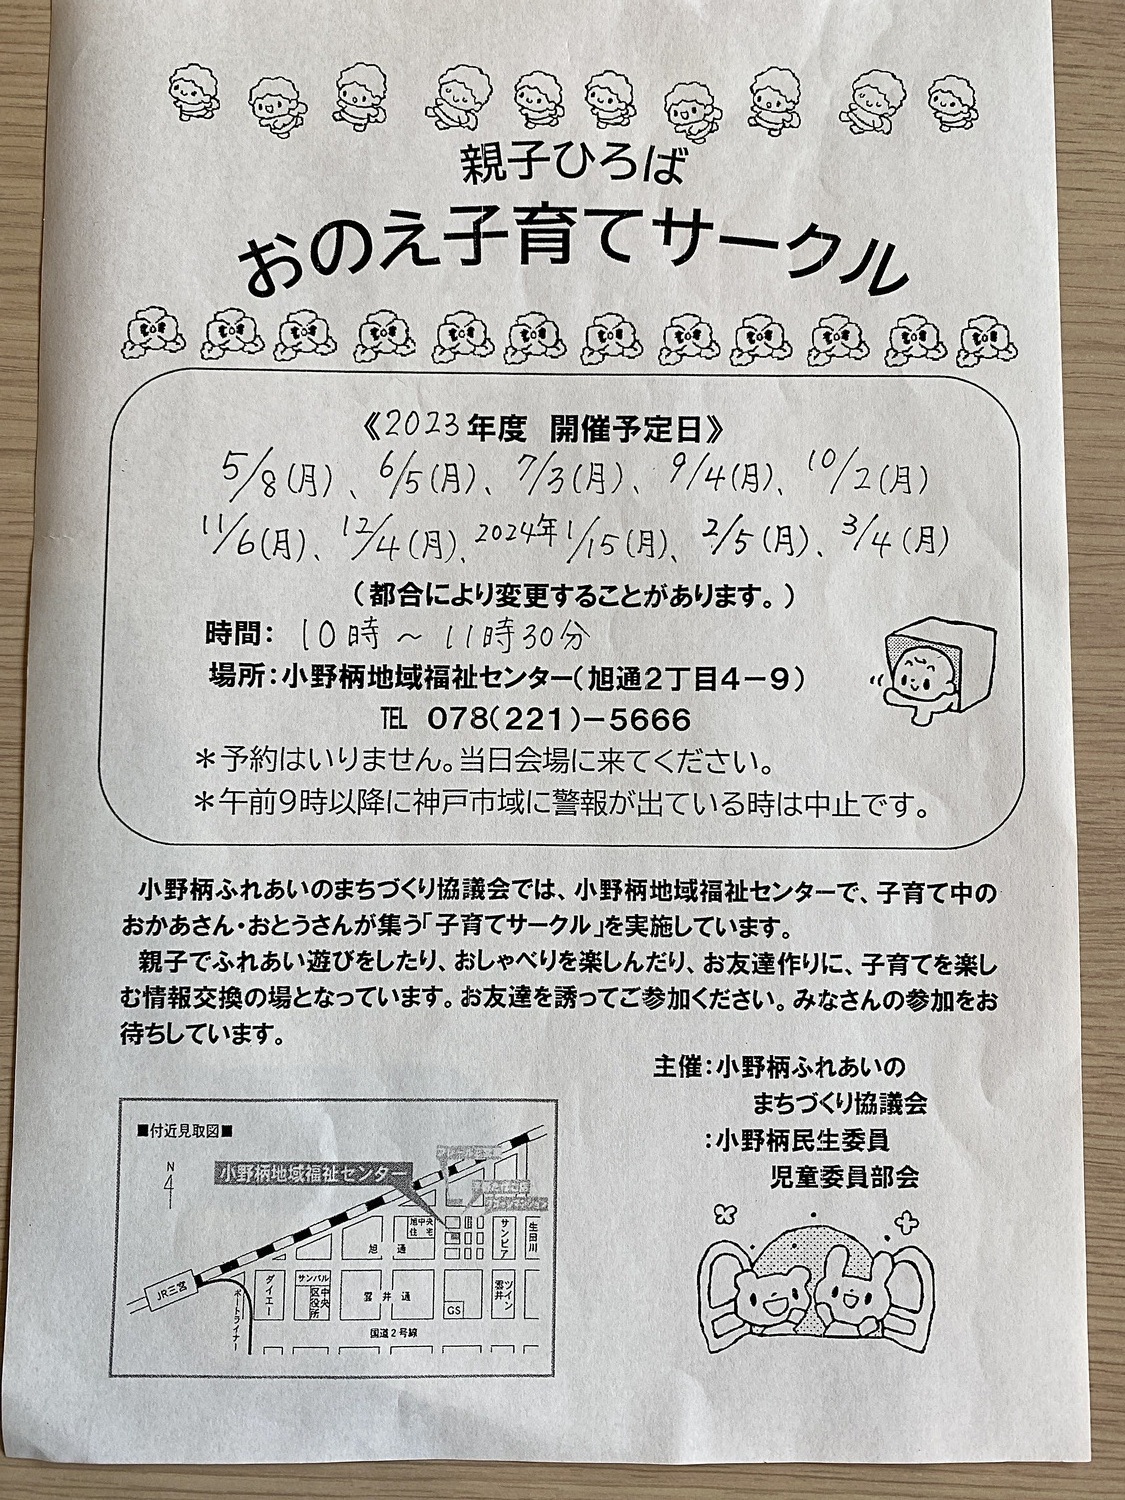 親子ひろば
おのえ子育てサークル
《2023年度 開催予定日》
5/8(月)、6/5(月)、7/3(月)、9/4(月)、10/2(月)
11/6(月)、12/4(月)、2024年1/15(月)、2/5(月)、3/4(月)
（都合により変更することがあります。）
時間： 10時〜11時30分
場所：小野柄地域福祉センター（旭通2丁目4－9）
℡ 078(221)－5666
＊予約はいりません。当日会場に来てください。
＊午前9時以降に神戸市域に警報が出ている時は中止です。
小野柄ふれあいのまちづくり協議会では、小野柄地域福祉センターで、子育て中の
おかあさん・おとうさんが集う「子育てサークル」を実施しています。
親子でふれあい遊びをしたり、おしゃべりを楽しんだり、お友達作りに、子育てを楽し
む情報交換の場となっています。お友達を誘ってご参加ください。みなさんの参加をお
待ちしています。
主催：小野柄ふれあいの
まちづくり協議会
：小野柄民生委員
児童委員部会
■付近見取図■
N
小野柄地域福祉センター
旭中央
住宅
サンピア
生田川
旭 通
JR三宮
ポートライナー
ダイエー
サンパル
中央
区役所
雲井通
GS
ツイン
雲井
国道2号線